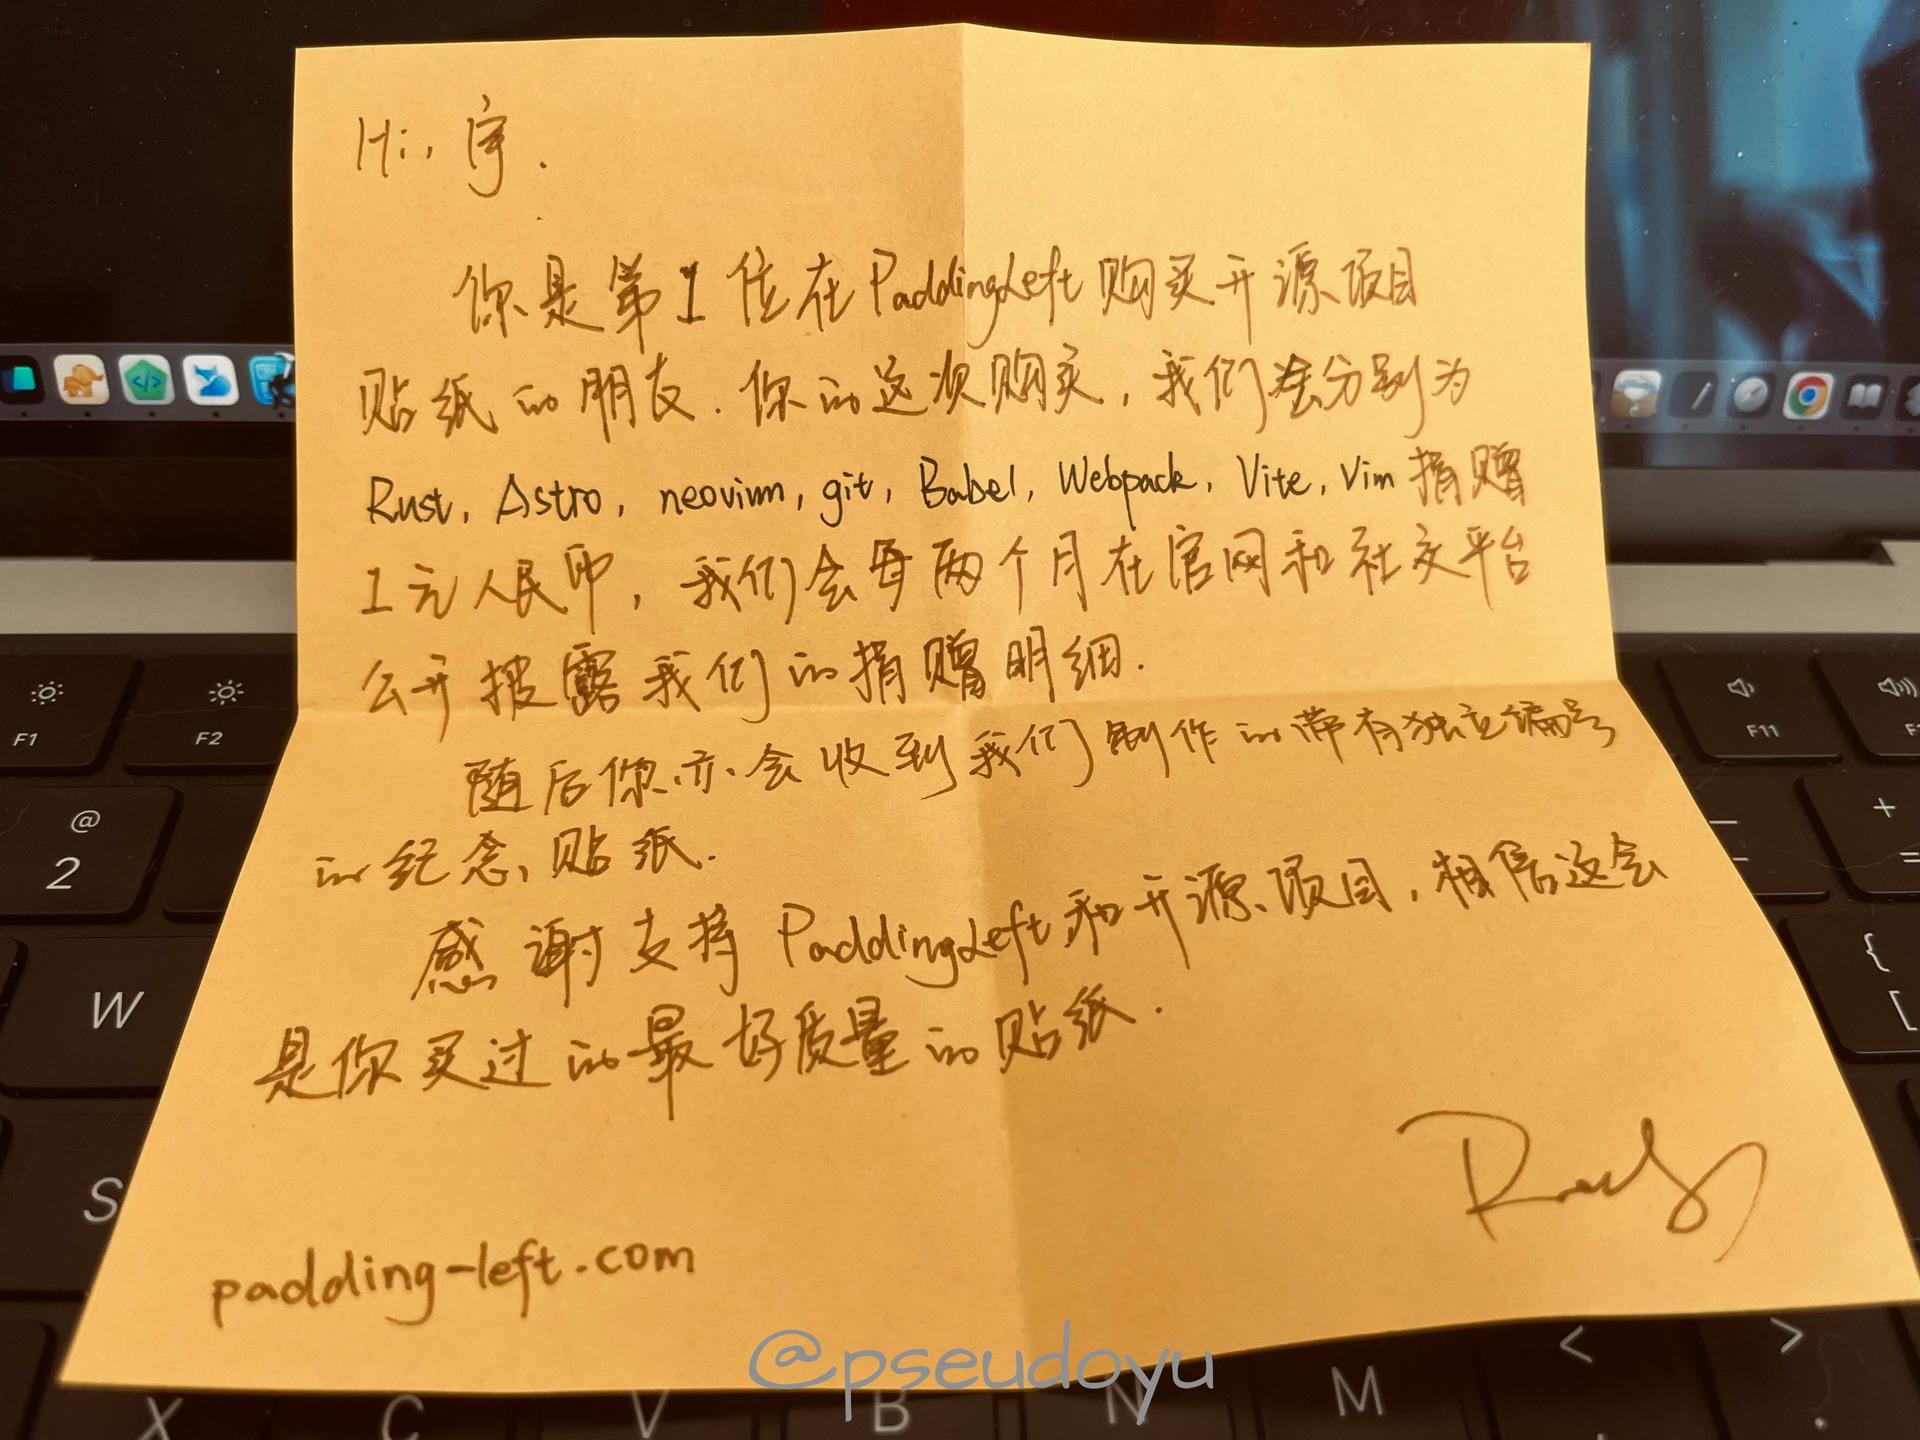 Hi, 宇.
你是第1位在PaddingLeft购买开源项目
贴纸的朋友. 你的这次购买, 我们会分别为
Rust, Astro, neovim, git, Babel, Webpack, Vite, Vim 捐赠
1元人民币, 我们会每两个月在官网和社交平台
公开披露我们的捐赠明细.
随后你亦会收到我们制作的带有独立编号
的纪念贴纸.
感谢支持 PaddingLeft和开源项目, 相信这会
是你买过的最好质量的贴纸.
padding-left.com
@pseudoyu
F1
F2
F11
@
2
W
S
X
C
V
B
N
M
<
>
+
=
{
[